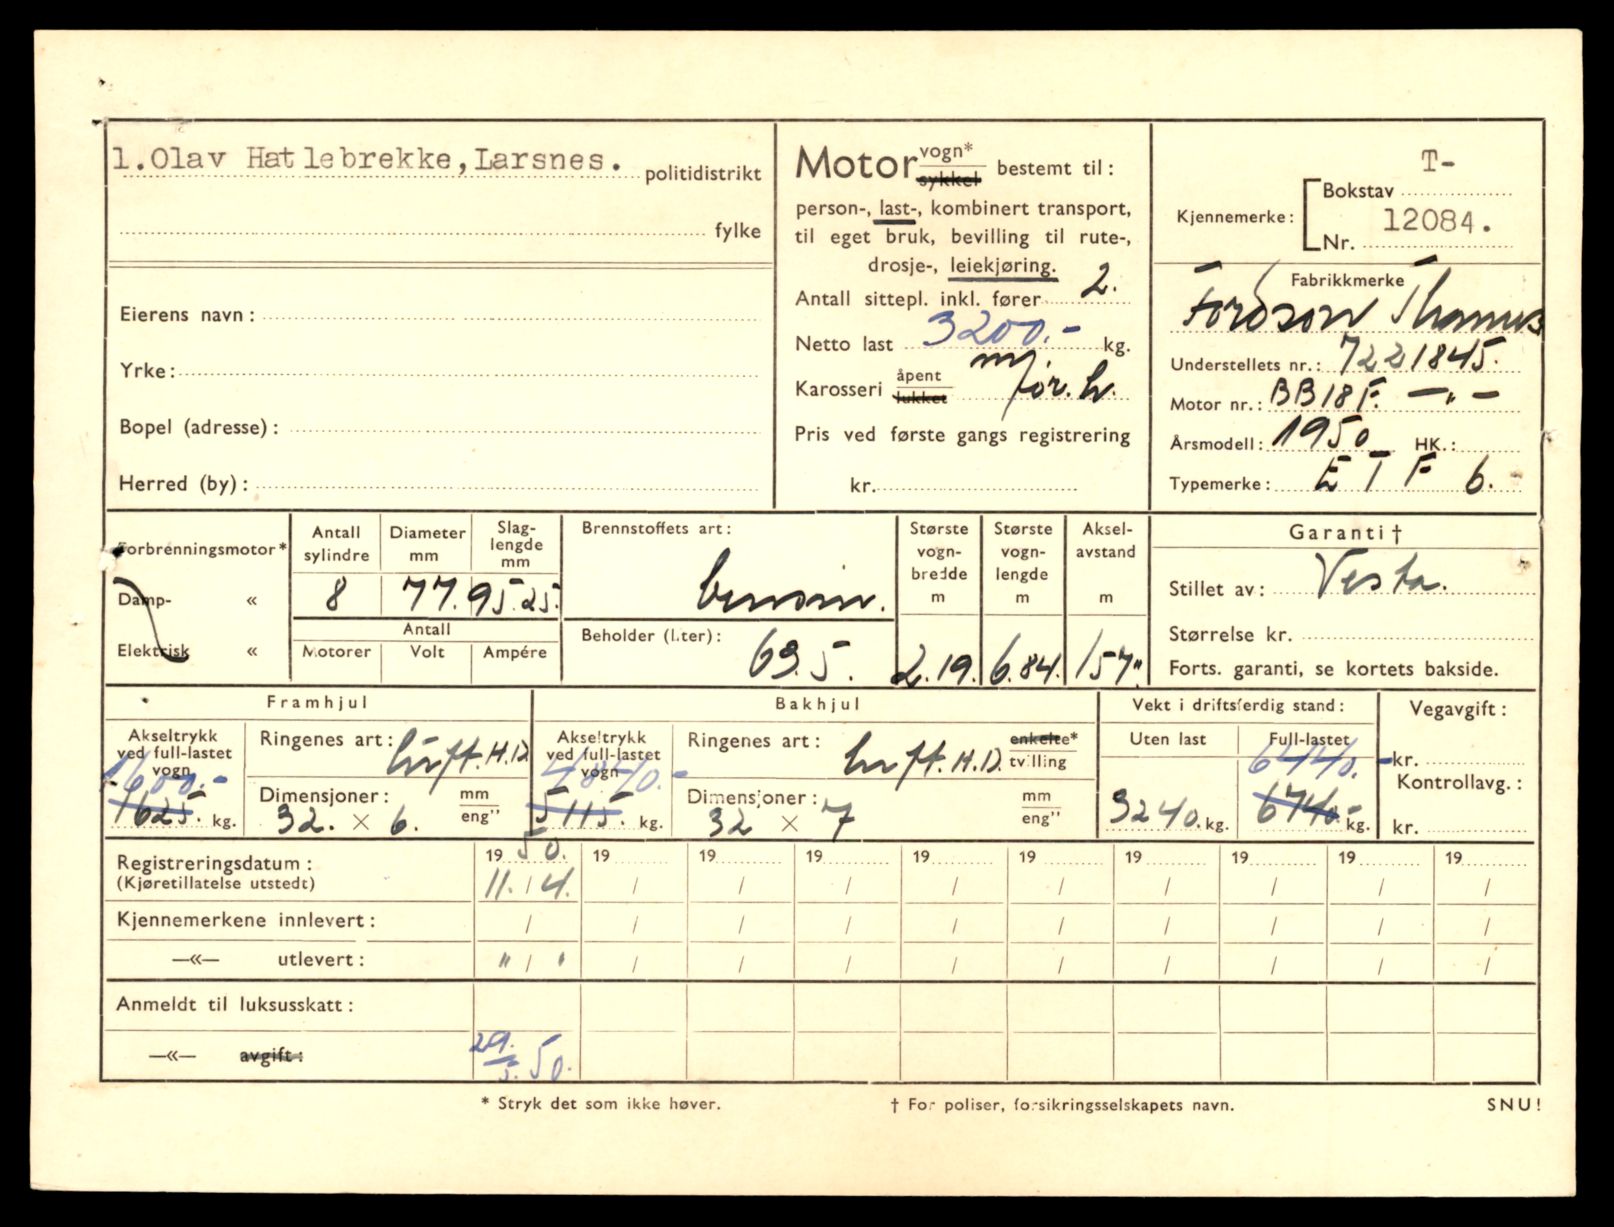 1.Olav Hatlebrekke,Larsnes. politidistrikt
fylke
Eierens navn:
Yrke:
Bopel (adresse):
Herred (by):
Motor vogn* sykkel bestemt til:
person-, last-, kombinert transport,
til eget bruk, bevilling til rute-,
drosje-, leiekjøring.
Antall sittepl. inkl. fører 2.
Netto last 3200.- kg.
Karosseri åpent lukket m/ för.h.
Pris ved første gangs registrering
kr.
Kjennemerke: Bokstav T-
Nr. 12084.
Fabrikkmerke
Fordson Thames
Understellets nr.: 7221845.
Motor nr.: BB18F. —„—
Årsmodell: 1950 HK.:
Typemerke: E T F 6.
Forbrenningsmotor*
Damp- «
Elektrisk «
Antall sylindre
8
Diameter mm
77.
Slaglengde mm
95.25.
Antall
Motorer Volt Ampére
Brennstoffets art:
bensin.
Beholder (liter): 63.5.
Største vognbredde m
2.19.
Største vognlengde m
6.84.
Akselavstand m
157"
Garanti †
Stillet av: Vesta.
Størrelse kr.
Forts. garanti, se kortets bakside.
Framhjul
Akseltrykk ved full-lastet vogn
1600.-
1625. kg.
Ringenes art: luft. H.D.
Dimensjoner: mm eng"
32. × 6.
Bakhjul
Akseltrykk ved full-lastet vogn
4840.-
5115. kg.
Ringenes art: luft. H.D. enkelte* tvilling
Dimensjoner: mm eng"
32 × 7
Vekt i driftsferdig stand:
Uten last
3240. kg.
Full-lastet
6440.-
6740.- kg.
Vegavgift:
kr.
Kontrollavg.:
kr.
Registreringsdatum: 1950. 19 19 19 19 19 19 19 19 19
(Kjøretillatelse utstedt) 11. / 4. / / / / / / / / /
Kjennemerkene innlevert: / / / / / / / / / /
—«— utlevert: " / " / / / / / / / / /
Anmeldt til luksusskatt:
—«— avgift: 29./5. 50.
* Stryk det som ikke høver.
† For poliser, forsikringsselskapets navn.
SNU!